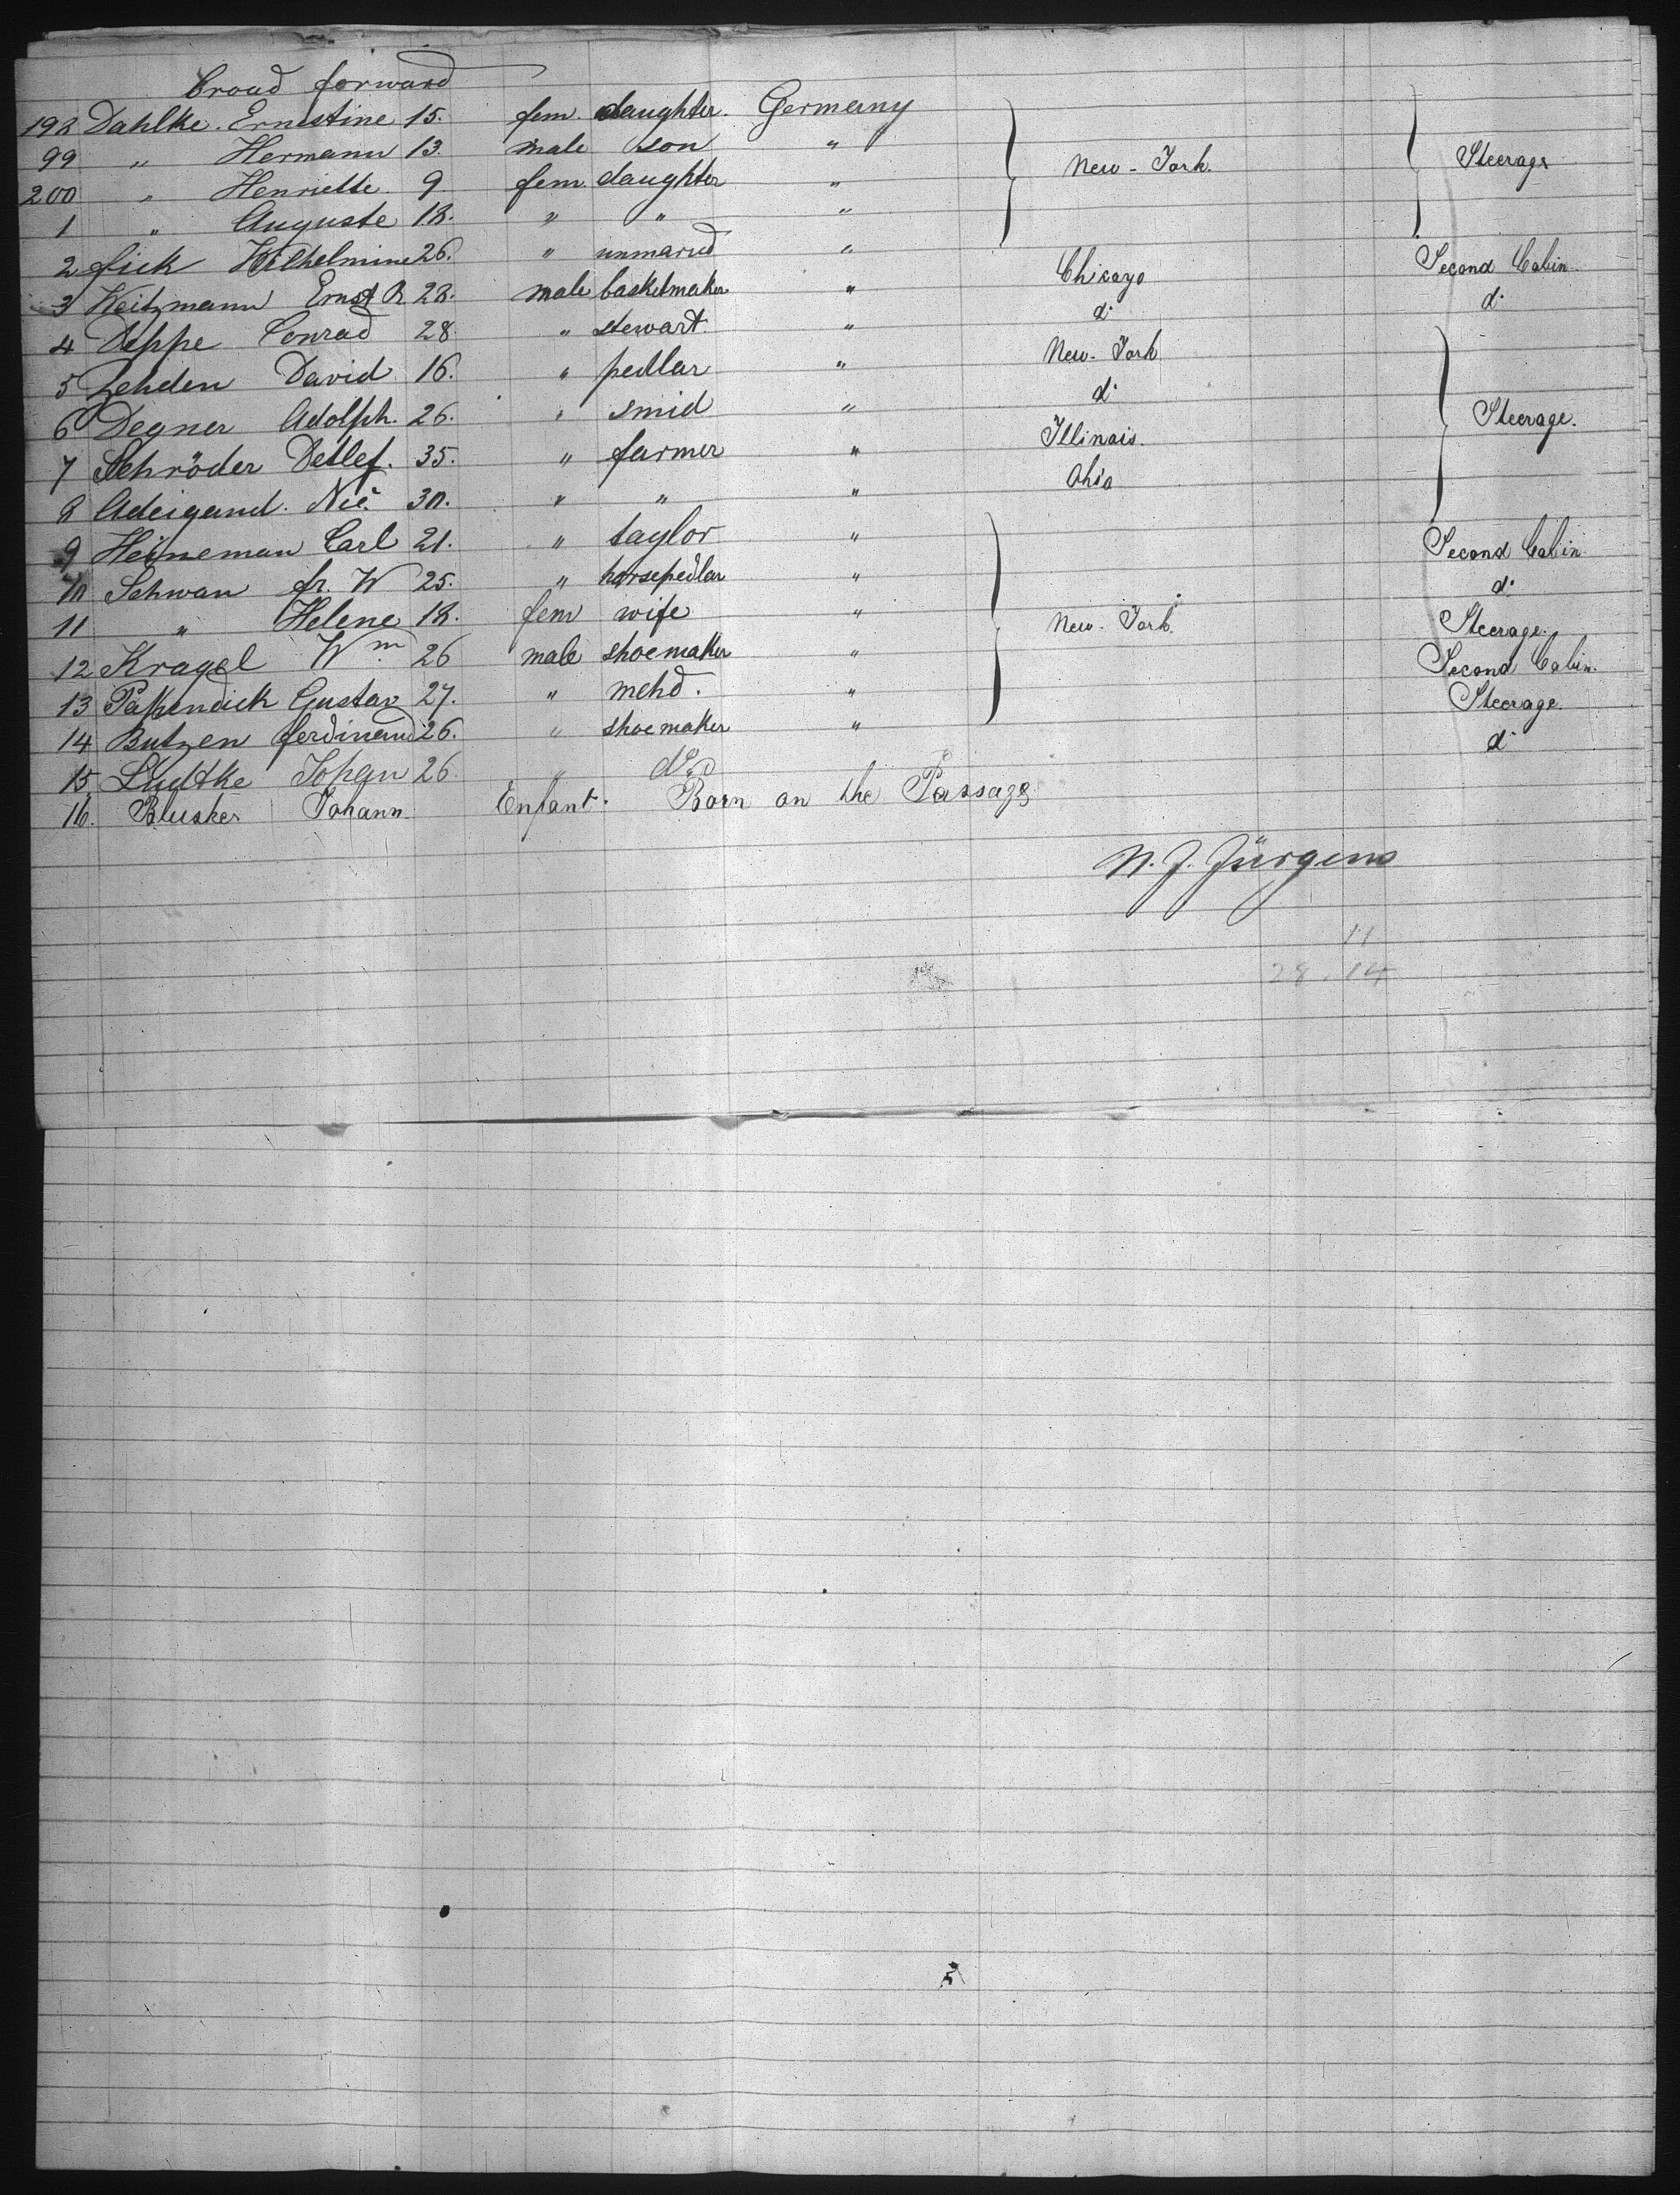 Broad forward
198 Dahlke. Ernestine 15. fem. daughter. Germany
99 " Hermann 13. male son "
200 " Henriette 9. fem. daughter " New-York. Steerage
1 " Auguste 18. " " "
2 fick Wilhelmine 26. " unmarid " Chicago Second Cabin.
3 Weitzmann Ernst R 28. male basketmaker " d. d.
4 Deppe Conrad 28. " stewart " New-York
5 Zehden David 16. " pedlar " d.
6 Degner Adolph. 26. " smid " Illinois. Steerage.
7 Schröder Detlef. 35. " farmer " Ohio
8 Adeigand. Nic. 30. " " "
9 Heineman Carl 21. " taylor " Second Cabin
10 Schwan fr. W 25. " horsepedlar " d.
11 " Helene 18. fem wife " New-York. Steerage.
12 Kragel Wm 26 male shoemaker " Second Cabin.
13 Papendick Gustav 27. " mehd. " Steerage
14 Butzen ferdinand 26. " shoemaker " d.
15. Lüdtke Johan 26. " do
16. Blusker Johann. Enfant. Born on the Passage
N. J. Jürgens
11
28.14